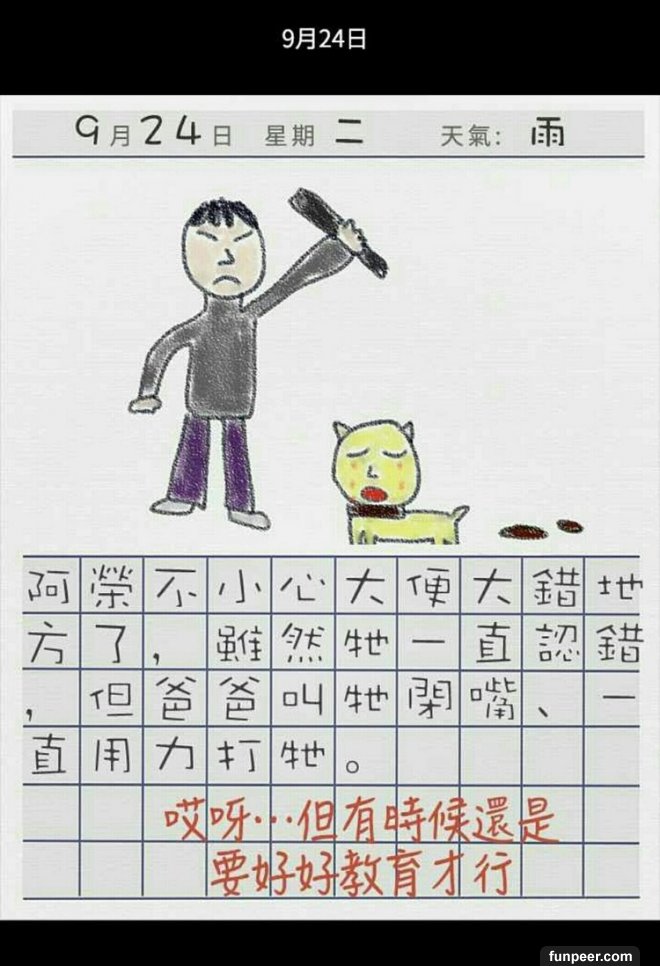 9月24日
9月24日 星期二 天氣：雨
阿榮不小心大便大錯地
方了，雖然牠一直認錯
，但爸爸叫牠閉嘴、一
直用力打牠。
哎呀…但有時候還是
要好好教育才行
funpeer.com